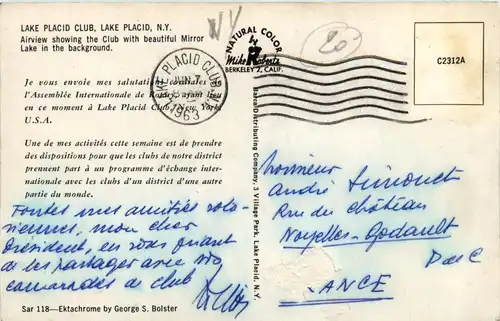 LAKE PLACID CLUB, LAKE PLACID, N.Y.
Airview showing the Club with beautiful Mirror
Lake in the background.
NY
NATURAL COLOR
Mike Roberts
BERKELEY 2, CALIF.
20
C2312A
LAKE PLACID CLUB N.Y.
JUN
1963
Je vous envoie mes salutations cordiales de
l'Assemblée Internationale de Rotary ayant lieu
en ce moment à Lake Placid Club, New York,
U.S.A.
Une de mes activités cette semaine est de prendre
des dispositions pour que les clubs de notre district
prennent part à un programme d'échange inter-
national avec les clubs d'un district d'une autre
partie du monde.
Toutes mes amitiés rota-
riennes, mon cher
Président, en vous priant
de les partager avec nos
camarades de club
Sar 118—Ektachrome by George S. Bolster
Distributing Company, 3 Village Park, Lake Placid, N. Y.
Monsieur
André Simonet
Rue du château
Noyelles-Godault
P de C
ANCE